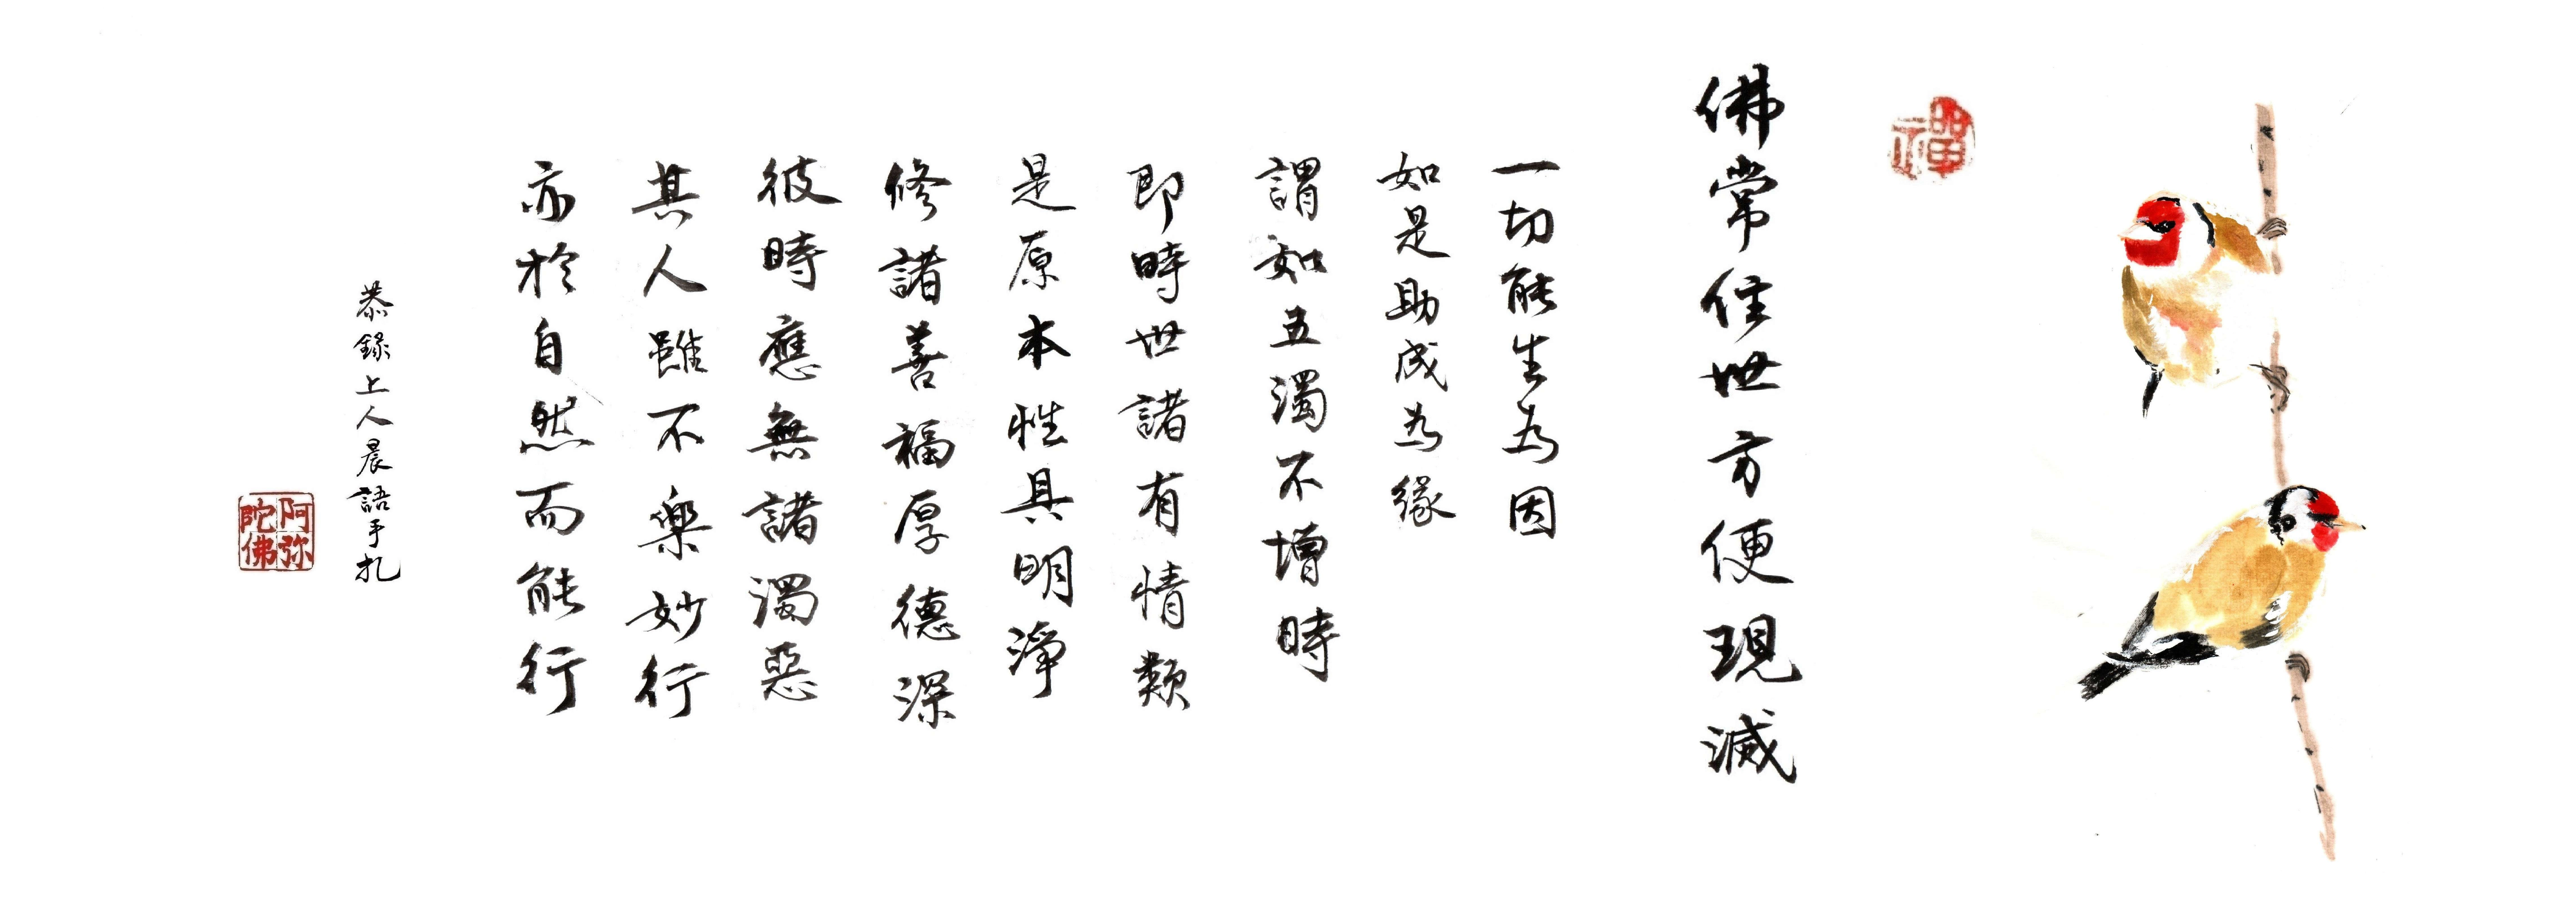 禪
佛常住世方便現滅
一切能生為因
如是助成為緣
謂如五濁不增時
即時世諸有情類
是原本性具明淨
修諸善福厚德深
彼時應無諸濁惡
其人雖不樂妙行
亦於自然而能行
恭錄上人晨語手札
阿弥
陀佛